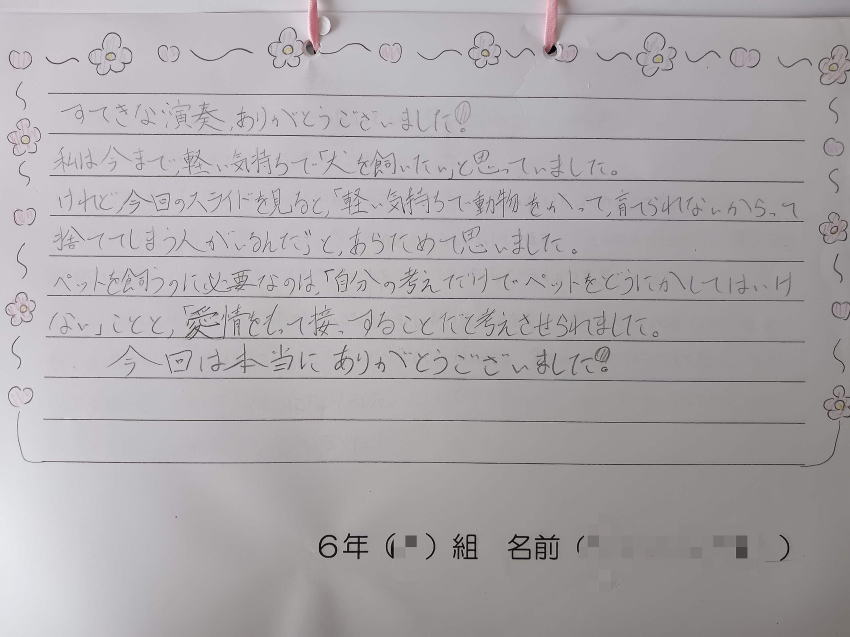 すてきな演奏、ありがとうございました!
私は今まで、軽い気持ちで「犬を飼いたい」と思っていました。
けれど、今回のスライドを見ると、「軽い気持ちで動物をかって、育てられないからって
捨ててしまう人がいるんだ」と、あらためて思いました。
ペットを飼うのに必要なのは、「自分の考えだけでペットをどうにかしてはいけ
ない」ことと、「愛情をもって接っすることだと考えさせられました。
今回は本当にありがとうございました!
6年( )組 名前( )